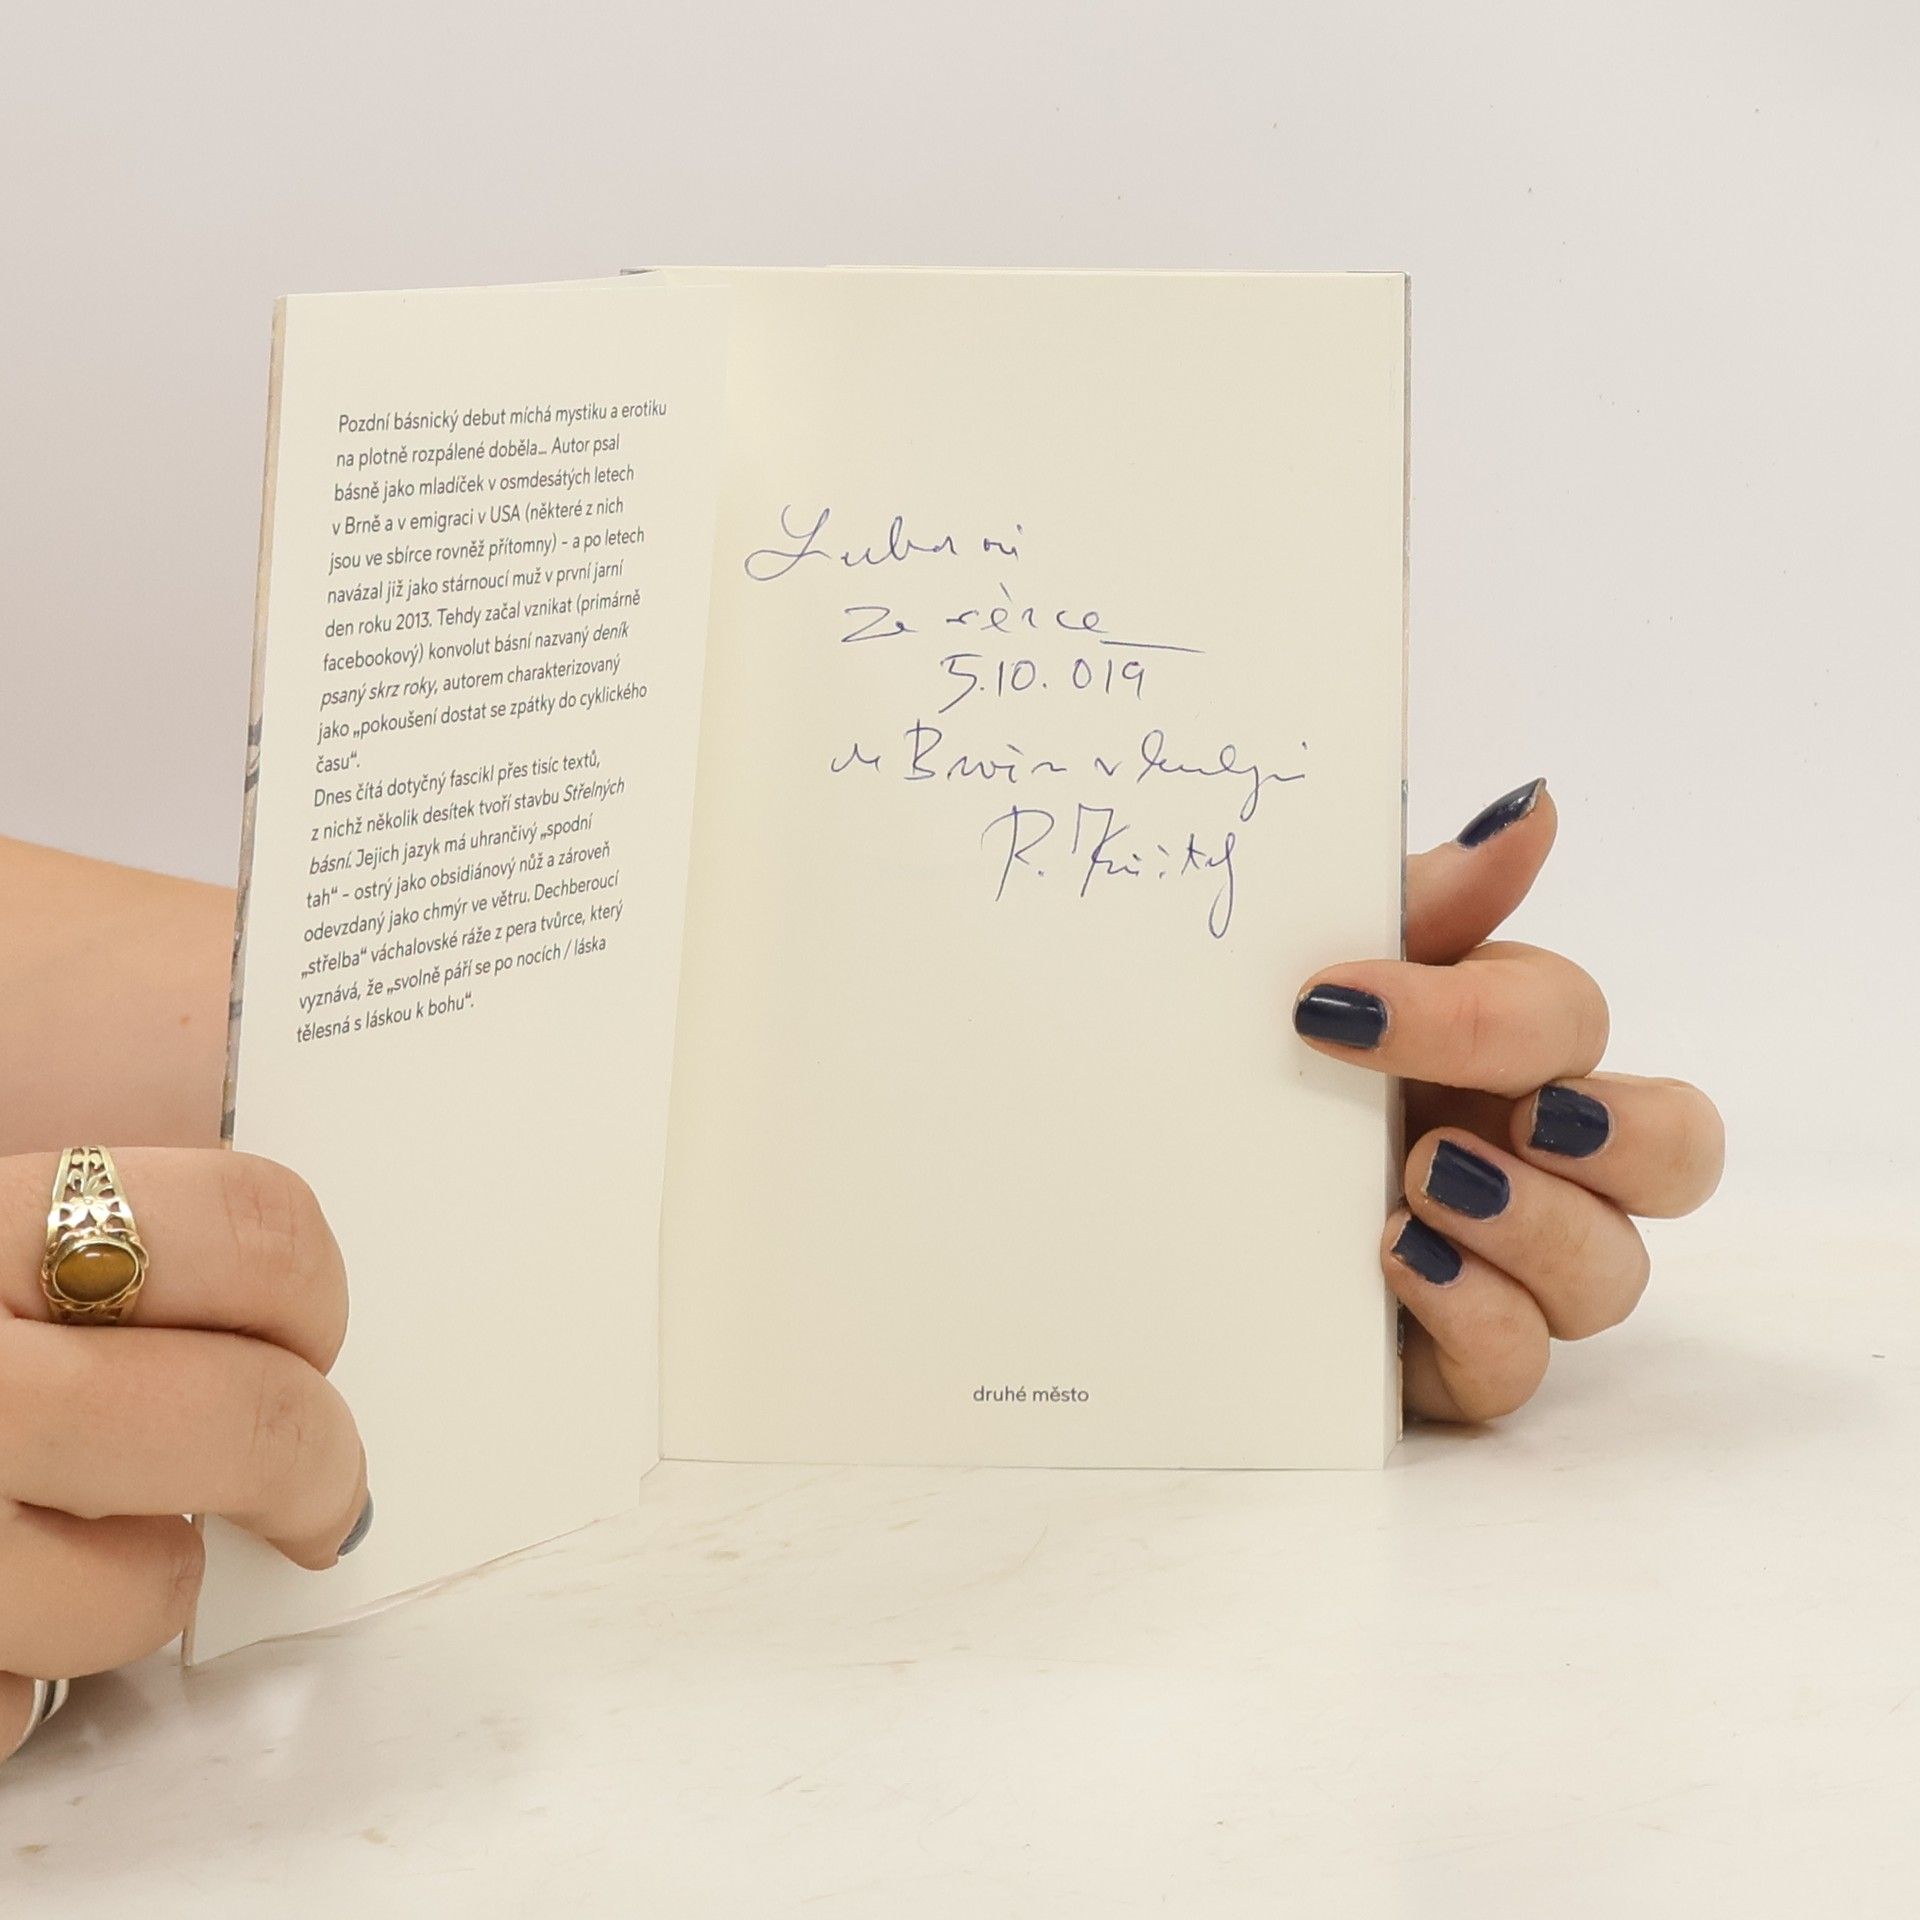 Pozdní básnický debut míchá mystiku a erotiku
na plotně rozpálené doběla... Autor psal
básně jako mladíček v osmdesátých letech
v Brně a v emigraci v USA (některé z nich
jsou ve sbírce rovněž přítomny) – a po letech
navázal již jako stárnoucí muž v první jarní
den roku 2013. Tehdy začal vznikat (primárně
facebookový) konvolut básní nazvaný deník
psaný skrz roky, autorem charakterizovaný
jako „pokoušení dostat se zpátky do cyklického
času“.
Dnes čítá dotyčný fascikl přes tisíc textů,
z nichž několik desítek tvoří stavbu Střelných
básní. Jejich jazyk má uhrančivý „spodní
tah“ – ostrý jako obsidiánový nůž a zároveň
odevzdaný jako chmýr ve větru. Dechberoucí
„střelba“ váchalovské ráže z pera tvůrce, který
vyznává, že „svolně páří se po nocích / láska
tělesná s láskou k bohu“.
ze srdce
5.10.019
R.
druhé město